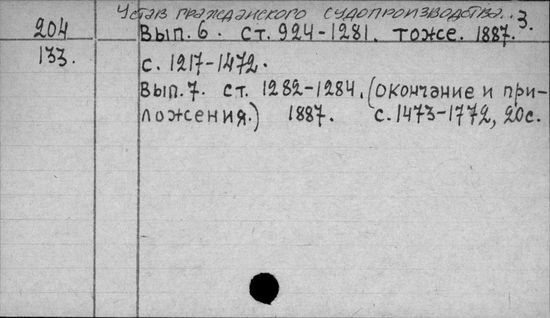 Устав гражданского судопроизводства... 3.
204 Вып. 6. ст. 924-1281. тоже. 1887.
133. с. 1217-1472.
Вып. 7. ст. 1282-1284. (окончание и при-
ложения.) 1887. с. 1473-1772, 20с.